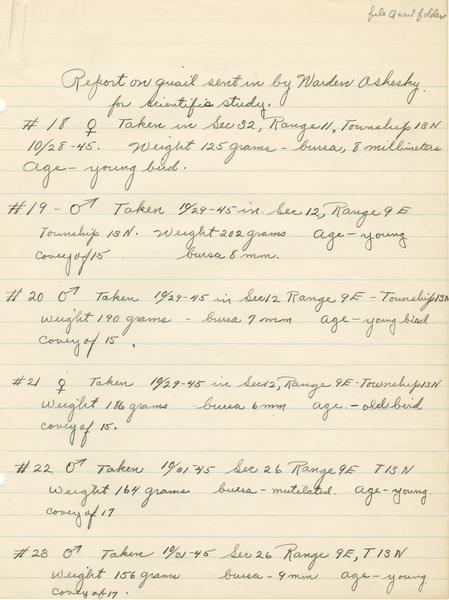 file Quail folder
Report on quail sent in by Warden Ashesky.
for scientific study.
# 18 ♀ Taken in Sec 32, Range 11, Township 13N
10/28-45. Weight 125 grams - bursa, 8 millimeters
Age - young bird.
#19 - ♂ Taken 10/29-45 in Sec 12, Range 9 E
Township 13N. Weight 202 grams Age - young
covey of 15 bursa 8 mm.
# 20 ♂ Taken 10/29-45 in Sec 12 Range 9E - Township 13N
Weight 190 grams - bursa 7 mm age - young bird
covey of 15.
#21 ♀ Taken 10/29-45 in Sec 12, Range 9E - Township 13N
Weight 186 grams - bursa 6 mm age. - old bird
covey of 15.
#22 ♂ Taken 10/31-45 Sec 26 Range 9E T13N
Weight 164 grams bursa - mutilated. age - young
covey of 17
#23 ♂ Taken 10/31-45 Sec 26 Range 9E, T13N
Weight 156 grams bursa - 9 mm age - young
covey of 17.